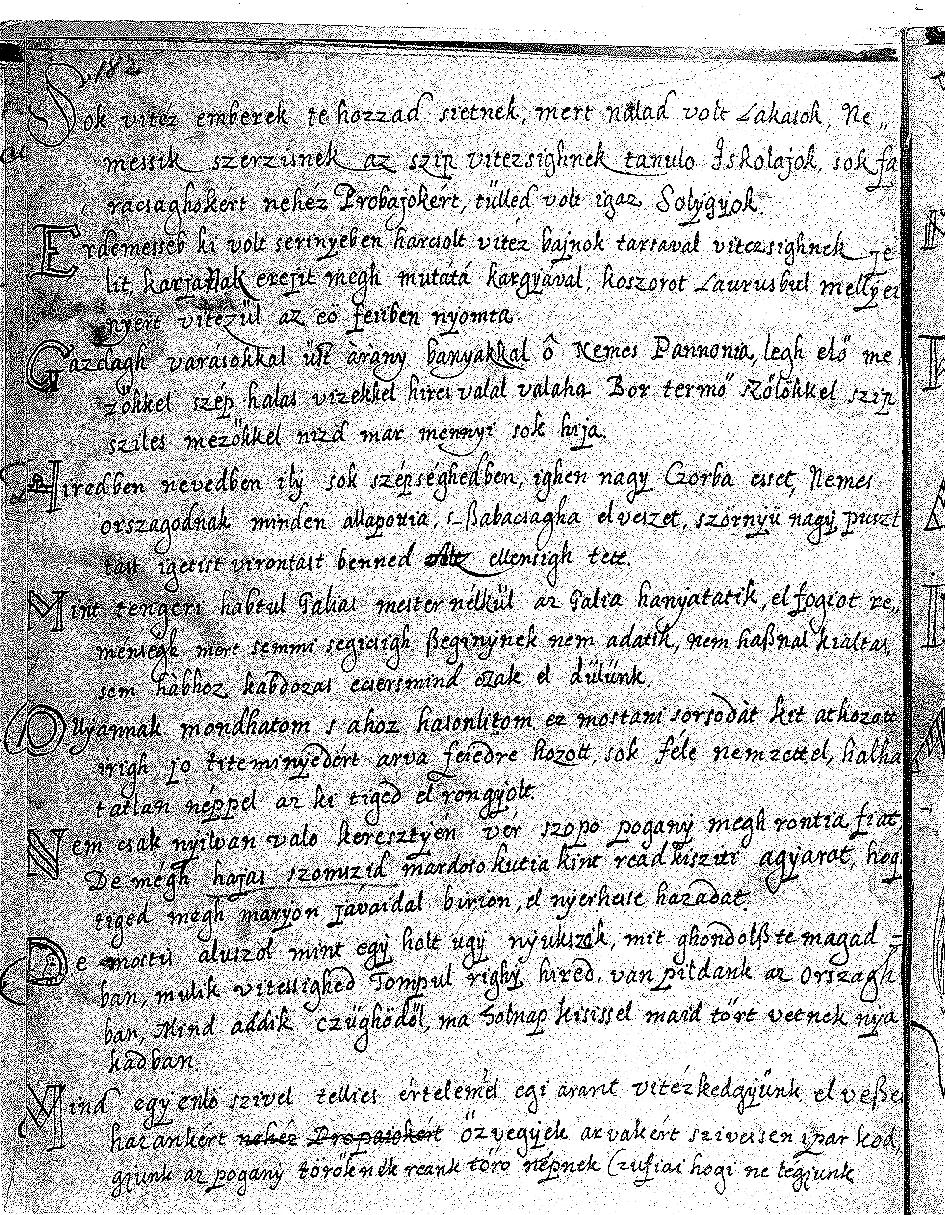 182
Sok vitéz emberek te hozzad sietnek, mert nálad volt Lakasok, Ne„
messik szerzisnek az szip vitezsighnek tanulo Iskolajok, sok fa
racsaghokert nehéz Probajokért, tülled volt igaz Soldgyok.
Erdemesseb ki volt serinyeben harcsolt vitez bajnok tarsaval vitezsighnek je
lit, karjanak erejit megh mutatá kargyaval, koszorot Laurusbul mellyei
nyert vitézül az eö feiiben nyomta
Gazdagh varasokkal üst àrany banyakkal ô Nemes Pannonia, legh elő me
zőkkel szép halas vizekkel hires valal valaha Bor termő szőlőkkel szip
sziles mezőkkel nizd mar mennyi sok hija.
Hiredben nevedben ily sok szépséghedben, ighen nagy Czorba esset, Nemes
országodnak minden allapottia, s ßabacsagha elveszet, szörnyü nagy puszt
tast igetist virontast benned ellensigh tett.
Mint tengeri habtul Galias mester nélkül az Galia hanyatatik, el fogiot re„
mensegk mert semmi segicsigh ßeginynek nem adatik, nem haßnal kialtas,
sem hàbhoz kabdozas eciersmind czak el dülünk.
Ollyannak mondhatom s ahoz hasonlitom ez mostani sorsodàt kit atkozatt
irigh jo titeminyedért arva feiedre hozott, sok féle nemzettel, halha
tatlan néppel az ki tiged el rongyolt.
Nem csak nyilvan valo keresztyén vér szopo pogany megh rontia fiat,
De mégh hajas szomszid mardoso kutia kint read kisziti agyarat, hogy
tiged megh maryon javaidal birion, el nyerhesse hazadat.
De mostis aluszol mint egy holt ugy nyukszik, mit ghondolß te magad =
ban, mulik vitessighed Tompul righi hired, van pildank az Orszagh
ban, Mind addik czüghödöl, ma holnap kisissel maid tört vetnek nya
kadban.
Mind egy enlö szivel tellies értelemel egi arant vitézkedgyünk el veßet
hazankert nehéz Propaiokért özvegyek arvakért sziversen ipar kod,
gjunk az pogany töröknek reank törö népnek Czufiai hogi ne legjunk